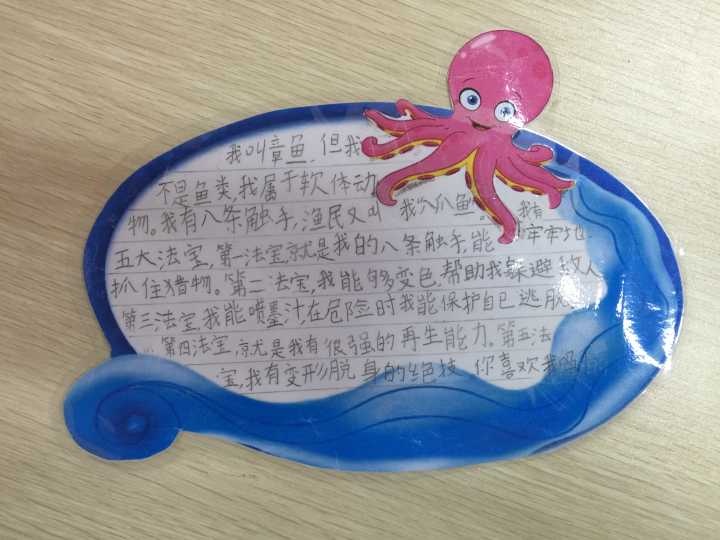 我叫章鱼,但我
不是鱼类,我属于软体动
物。我有八条触手,渔民又叫我"八爪鱼"。我有
五大法宝,第一法宝就是我的八条触手,能牢牢地
抓住猎物。第二法宝,我能够变色,帮助我躲避敌人
第三法宝,我能喷墨汁,在危险时我能保护自己逃脱
第四法宝,就是我有很强的再生能力。第五法
宝,我有变形脱身的绝技。你喜欢我吗